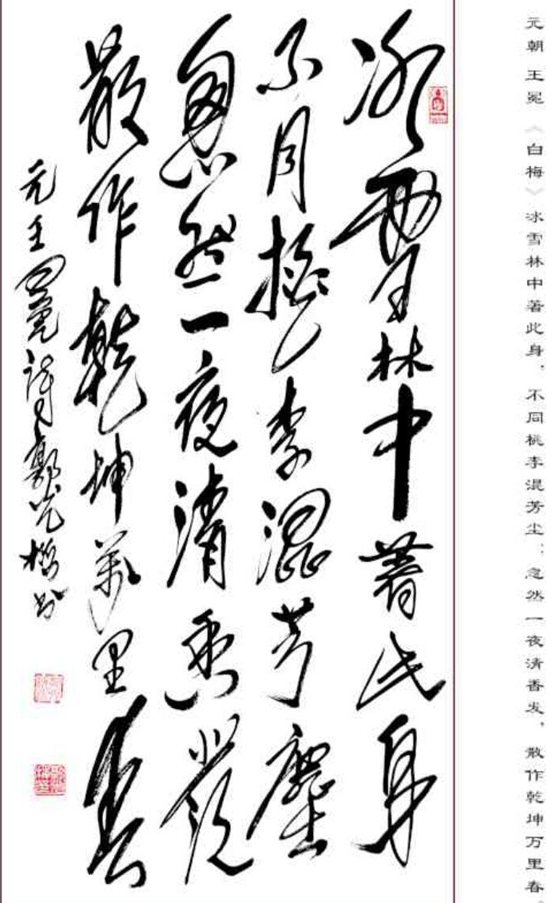 冰雪林中著此身
不同桃李混芳塵
忽然一夜清香發
散作乾坤萬里春
元王冕詩
元朝 王冕《白梅》冰雪林中著此身，不同桃李混芳尘；忽然一夜清香发，散作乾坤万里春。